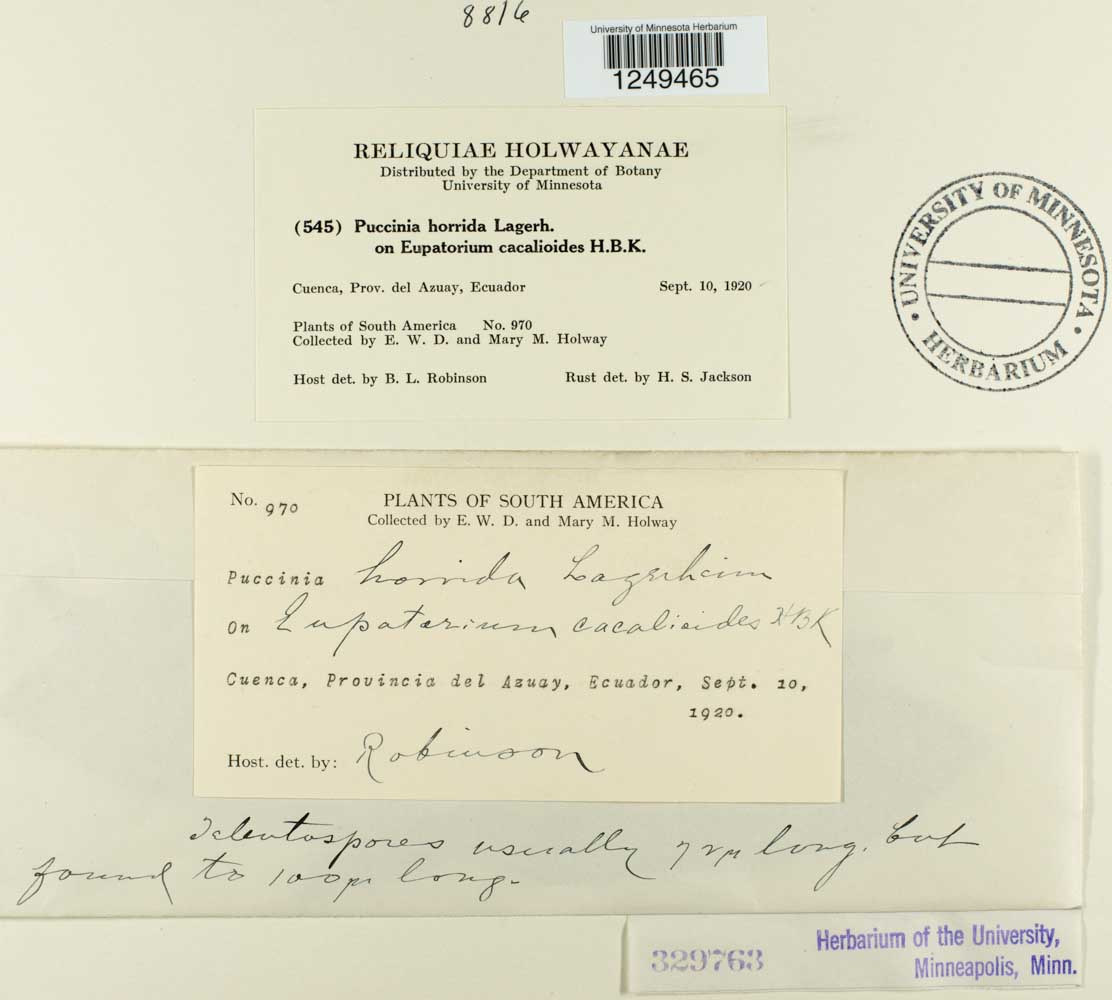 8816
University of Minnesota Herbarium
1249465
RELIQUIAE HOLWAYANAE
Distributed by the Department of Botany
University of Minnesota
(545) Puccinia horrida Lagerh.
on Eupatorium cacalioides H.B.K.
Cuenca, Prov. del Azuay, Ecuador Sept. 10, 1920
Plants of South America No. 970
Collected by E. W. D. and Mary M. Holway
Host det. by B. L. Robinson Rust det. by H. S. Jackson
UNIVERSITY OF MINNESOTA
HERBARIUM
No. 970 PLANTS OF SOUTH AMERICA
Collected by E. W. D. and Mary M. Holway
Puccinia horrida Lagerheim
On Eupatorium cacalioides HBK
Cuenca, Provincia del Azuay, Ecuador, Sept. 10,
1920.
Host. det. by: Robinson
Teleutospores usually long, but
found to 100µ long.
329763 Herbarium of the University,
Minneapolis, Minn.